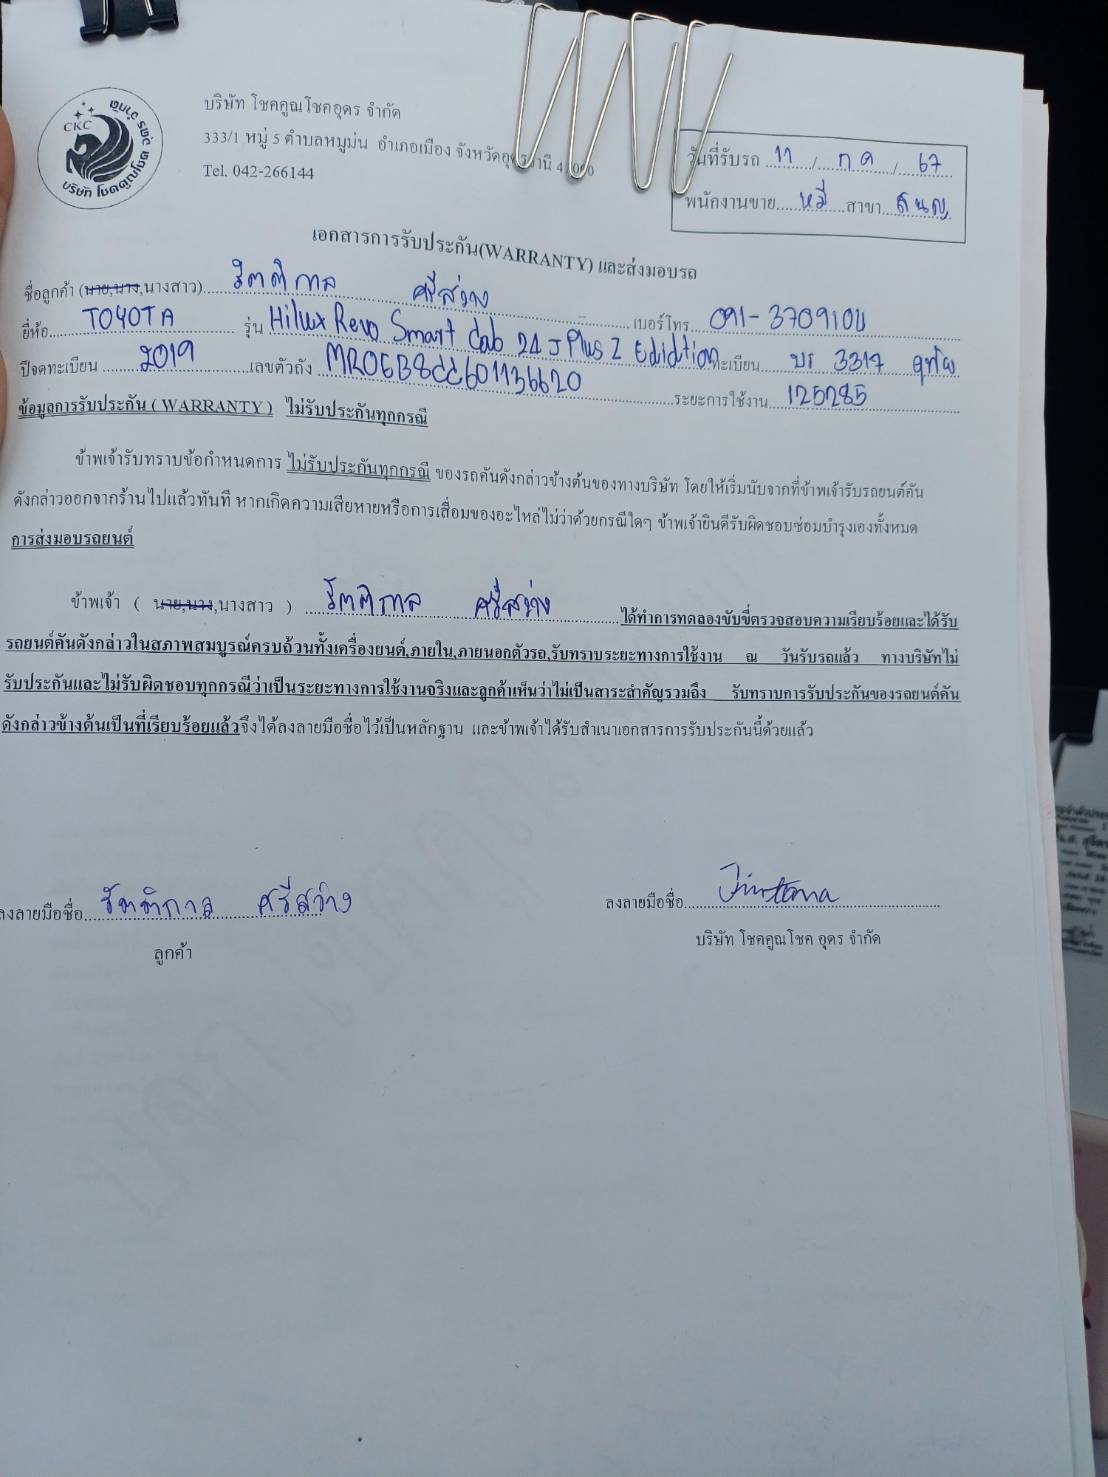 CKC
บริษัท โชคคูณโชคอุดร จำกัด
333/1 หมู่ 5 ตำบลหมูม่น อำเภอเมือง จังหวัดอุดรธานี 41000
Tel. 042-266144
วันที่รับรถ 11 / กค / 67
พนักงานขาย หมี สาขา
เอกสารการรับประกัน(WARRANTY) และส่งมอบรถ
ชื่อลูกค้า (นาย,นาง,นางสาว) รัตติกาล ศรีสว่าง เบอร์โทร 091-3709104
ยี่ห้อ TOYOTA รุ่น Hilux Revo Smart Cab 2.4 J Plus Z Edidtion ทะเบียน บร 3317 อุทัย
ปีจดทะเบียน 2019 เลขตัวถัง MR0EB8CC601136620 ระยะการใช้งาน 125285
ข้อมูลการรับประกัน ( WARRANTY ) ไม่รับประกันทุกกรณี
ข้าพเจ้ารับทราบข้อกำหนดการ ไม่รับประกันทุกกรณี ของรถคันดังกล่าวข้างต้นของทางบริษัท โดยให้เริ่มนับจากที่ข้าพเจ้ารับรถยนต์คัน
ดังกล่าวออกจากร้านไปแล้วทันที หากเกิดความเสียหายหรือการเสื่อมของอะไหล่ไม่ว่าด้วยกรณีใดๆ ข้าพเจ้ายินดีรับผิดชอบซ่อมบำรุงเองทั้งหมด
การส่งมอบรถยนต์
ข้าพเจ้า ( นาย,นาง,นางสาว ) รัตติกาล ศรีสว่าง ได้ทำการทดลองขับขี่ตรวจสอบความเรียบร้อยและได้รับ
รถยนต์คันดังกล่าวในสภาพสมบูรณ์ครบถ้วนทั้งเครื่องยนต์,ภายใน,ภายนอกตัวรถ,รับทราบระยะทางการใช้งาน ณ วันรับรถแล้ว ทางบริษัทไม่
รับประกันและไม่รับผิดชอบทุกกรณีว่าเป็นระยะทางการใช้งานจริงและลูกค้าเห็นว่าไม่เป็นสาระสำคัญรวมถึง รับทราบการรับประกันของรถยนต์คัน
ดังกล่าวข้างต้นเป็นที่เรียบร้อยแล้วจึงได้ลงลายมือชื่อไว้เป็นหลักฐาน และข้าพเจ้าได้รับสำเนาเอกสารการรับประกันนี้ด้วยแล้ว
ลงลายมือชื่อ รัตติกาล ศรีสว่าง
ลูกค้า
ลงลายมือชื่อ
บริษัท โชคคูณโชค อุดร จำกัด